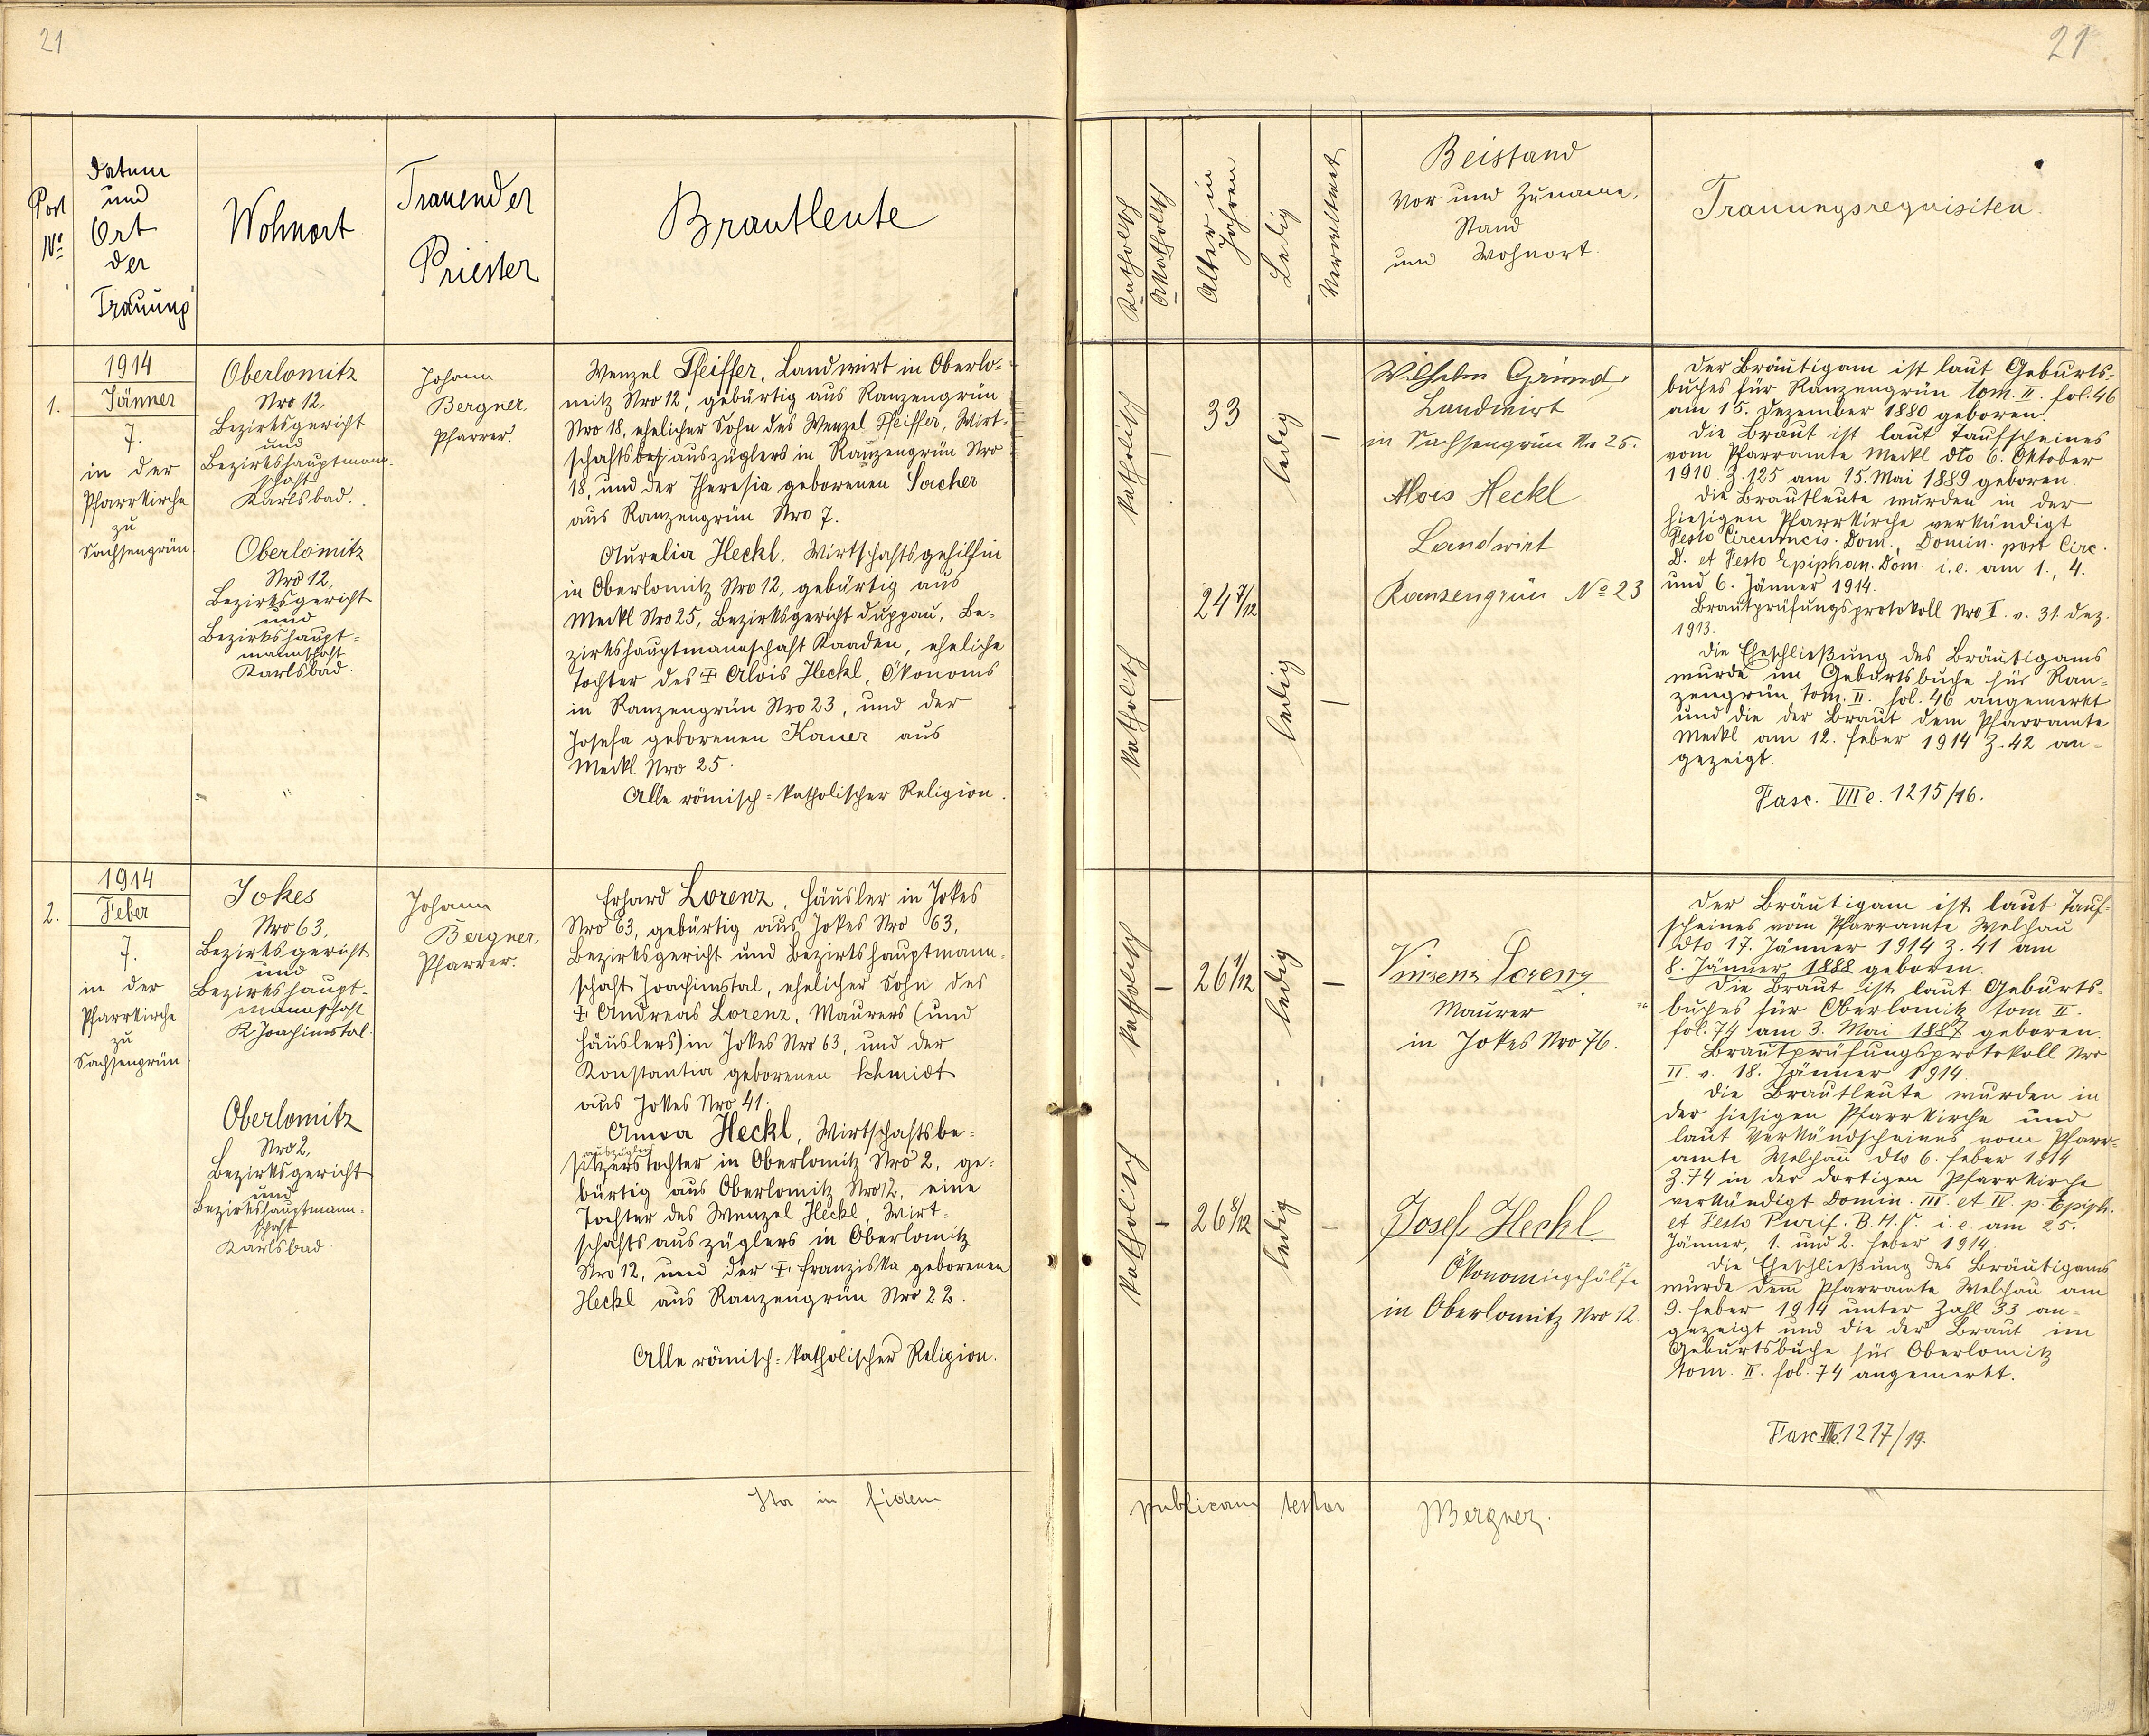 21
21
Post
Nº
Datum
und
Ort
der
Trauung
Wohnort
Trauender
Priester
Brautleute
Katholisch
Akatholisch
Alter in
Jahren
Ledig
Verwitwet
Beistand
Vor und Zuname,
Stand
und Wohnort.
Trauungsrequisiten.
1.
1914
Jänner
7.
in der
Pfarrkirche
zu
Sachsengrün
Oberlomitz
Nro 12,
Bezirksgericht
und
Bezirkshauptmann-
schaft
Karlsbad.
Oberlomitz
Nro 12,
Bezirksgericht
und
Bezirkshaupt=
mannschaft
Karlsbad.
Johann
Bergner,
Pfarrer.
Wenzel Pfeiffer, Landwirt in Oberlo=
mitz Nro 12, gebürtig aus Ranzengrün
Nro 18, ehelicher Sohn des Wenzel Pfeiffer, Wirt-
schaftsbes auszüglers in Ranzengrün Nro
18, und der Theresia geborenen Sacher
aus Ranzengrün Nro 7.
Aurelia Heckl, Wirtschaftsgehilfin
in Oberlomitz Nro 12, gebürtig aus
Meckl Nro 25, Bezirksgericht Duppau, Be-
zirkshauptmannschaft Kaaden, eheliche
Tochter des ‡ Alois Heckl, Ökonoms
in Ranzengrün Nro 23, und der
Josefa geborenen Kauer aus
Meckl Nro 25.
Alle römisch=katholischer Religion.
katholisch
–
33
ledig
–
katholisch
–
24 7/12
ledig
–
Wilhelm Grund,
Landwirt
in Sachsengrün Nr 25.
Alois Heckl
Landwirt
Ranzengrün Nº 23
Der Bräutigam ist laut Geburts-
buches für Ranzengrün tom. II. fol. 46
am 15. Dezember 1880 geboren.
Die Braut ist laut Taufscheines
vom Pfarramte Meckl dto 6. Oktober
1910 Z. 125 am 15. Mai 1889 geboren.
Die Brautleute wurden in der
hiesigen Pfarrkirche verkündigt
Festo Circumcis. Dom., Domin. post Circ.
D. et Festo Epiphan. Dom. i. e. am 1., 4.
und 6. Jänner 1914.
Brautprüfungsprotokoll Nro I. v. 31. Dez.
1913.
Die Eheschließung des Bräutigams
wurde im Geburtsbuche für Ran-
zengrün tom. II. fol. 46 angemerkt
und die der Braut dem Pfarramte
Meckl am 12. Feber 1914 Z. 42 an=
gezeigt.
Fasc. VII e. 1215/16.
2.
1914
Feber
7.
in der
Pfarrkirche
zu
Sachsengrün
Jokes
Nro 63,
Bezirksgericht
und
Bezirkshaupt-
mannschaft
Joachimstal.
Oberlomitz
Nro 2,
Bezirksgericht
und
Bezirkshauptmann-
schaft
Karlsbad
Johann
Bergner,
Pfarrer.
Erhard Lorenz, Häusler in Jokes
Nro 63, gebürtig aus Jokes Nro 63,
Bezirksgericht und Bezirkshauptmann-
schaft Joachimstal, ehelicher Sohn des
‡ Andreas Lorenz, Maurers (und
Häuslers) in Jokes Nro 63, und der
Konstantia geborenen Schmidt
aus Jokes Nro 41.
Anna Heckl, Wirtschaftsbe=
auszügler
sitzerstochter in Oberlomitz Nro 2, ge=
bürtig aus Oberlomitz Nro 12, eine
Tochter des Wenzel Heckl, Wirt=
schaftsauszüglers in Oberlomitz
Nro 12, und der ‡ Franziska geborenen
Heckl aus Ranzengrün Nro 22.
Alle römisch=katholischer Religion.
katholisch
–
26 1/12
ledig
–
katholisch
–
26 8/12
ledig
–
Vinzenz Lorenz
Maurer
in Jokes Nro 76.
Josef Heckl
Ökonomiegehülfe
in Oberlomitz Nro 12.
Der Bräutigam ist laut Tauf-
scheines vom Pfarramte Welchau
dto 17. Jänner 1914 Z. 41 am
8. Jänner 1888 geboren.
Die Braut ist laut Geburts-
buches für Oberlomitz tom II.
fol. 74 am 3. Mai 1887 geboren.
Brautprüfungsprotokoll Nro
II. v. 18. Jänner 1914.
Die Brautleute wurden in
der hiesigen Pfarrkirche und
laut Verkündscheines vom Pfarr-
amte Welchau dto 6. Feber 1914
Z. 74 in der dortigen Pfarrkirche
verkündigt Domin. III. et IV. p. Epiph.
et Festo Purif. B. M. V. i. e. am 25.
Jänner, 1. und 2. Feber 1914.
Die Eheschließung des Bräutigams
wurde dem Pfarramte Welchau am
9. Feber 1914 unter Zahl 33 an-
gezeigt und die der Braut im
Geburtsbuche für Oberlomitz
tom. II. fol. 74 angemerkt.
Fasc. VIIe. 1217/19.
Ita in fidem
publicam testor
JBergner.